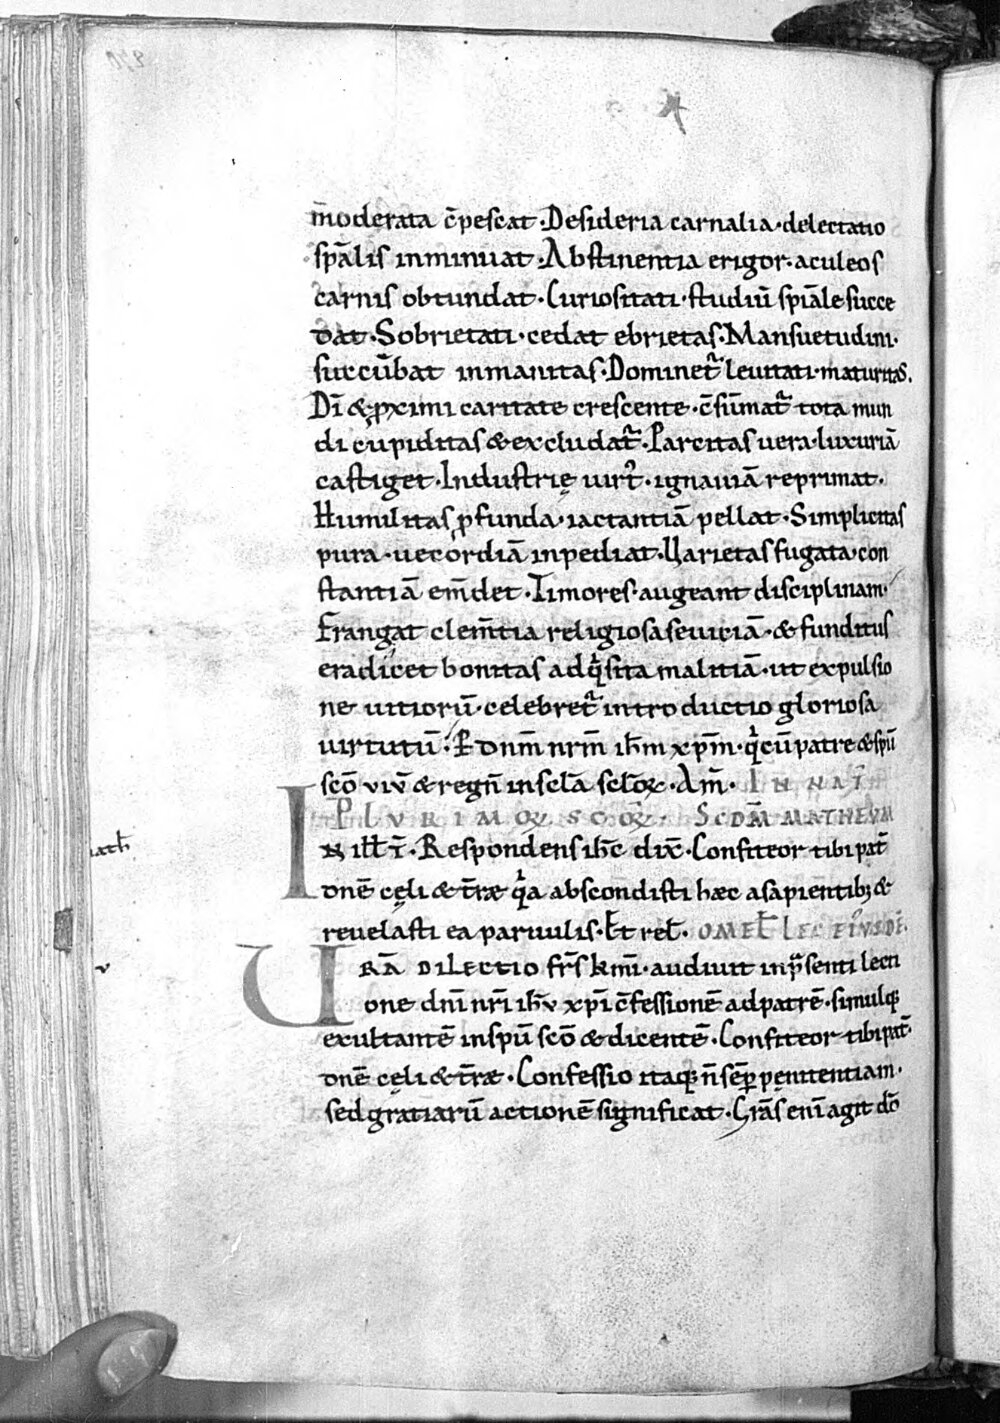 m̄oderata c̄pescat · Desideria carnalia · delectatio
sp̄alis inminuat · Abstinentia erigor · aculeos
carnis obtundat · Curiositati · studiū spiāle succe
dat · Sobrietati · cedat ebrietas · Mansuetudini ·
succūbat inmanitas · Dominet᷑ leuitati · maturitas .
Dī & ꝓximi caritate crescente · c̄sūmat᷑ tota mun
di cupiditas & excludat᷑ · Parcitas uera · luxuriā
castiget · Industrię uirt᷑ · ignauiā reprimat ·
Humilitas ꝓfunda · iactantiā pellat · Simplicitas
pura · uecordiā inpediat · Uarietas fugata · con
stantiā em̄det · Timores · augeant disciplinam ·
Frangat clem̄tia religiosa seuiciā · & funditus
eradicet bonitas adq̇sita malitiā · ut expulsio
ne uitiorū · celebret᷑ introductio gloriosa
uirtutū · P dn̄m nr̄m ih̄m xp̄m · q̇ cū patre & sp̄u
scō viv̄ & regn̄ in scl̄a scl̄oꝝ · Am̄ · IN NAT̄
PLVRIMOꝝ SCOꝝ · SCDM̄ MATHEVM
IN ill̄ t̄ · Respondens ih̄c dix̄ · Confiteor tibi pat̄
dn̄e cęli & t̄ræ q̇a abscondisti hæc a sapientibꝫ &
reuelasti ea paruulis · Et rel̄ · OMEL̄ LEC EIVSDĒ .
URĀ DILECTIO fr̄s km̄i · audiuit in p̄senti lecti
one dn̄i nr̄i ih̄v xp̄i c̄fessionē ad patrē · simulqꝫ
exultantē in sp̄u scō & dicentē · Confiteor tibi pat̄ ·
dn̄e cęli & t̄ræ · Confessio itaqꝫ n̄ semꝑ penitentiam ·
sed gratiarū actionē significat · Grās enī agit dō